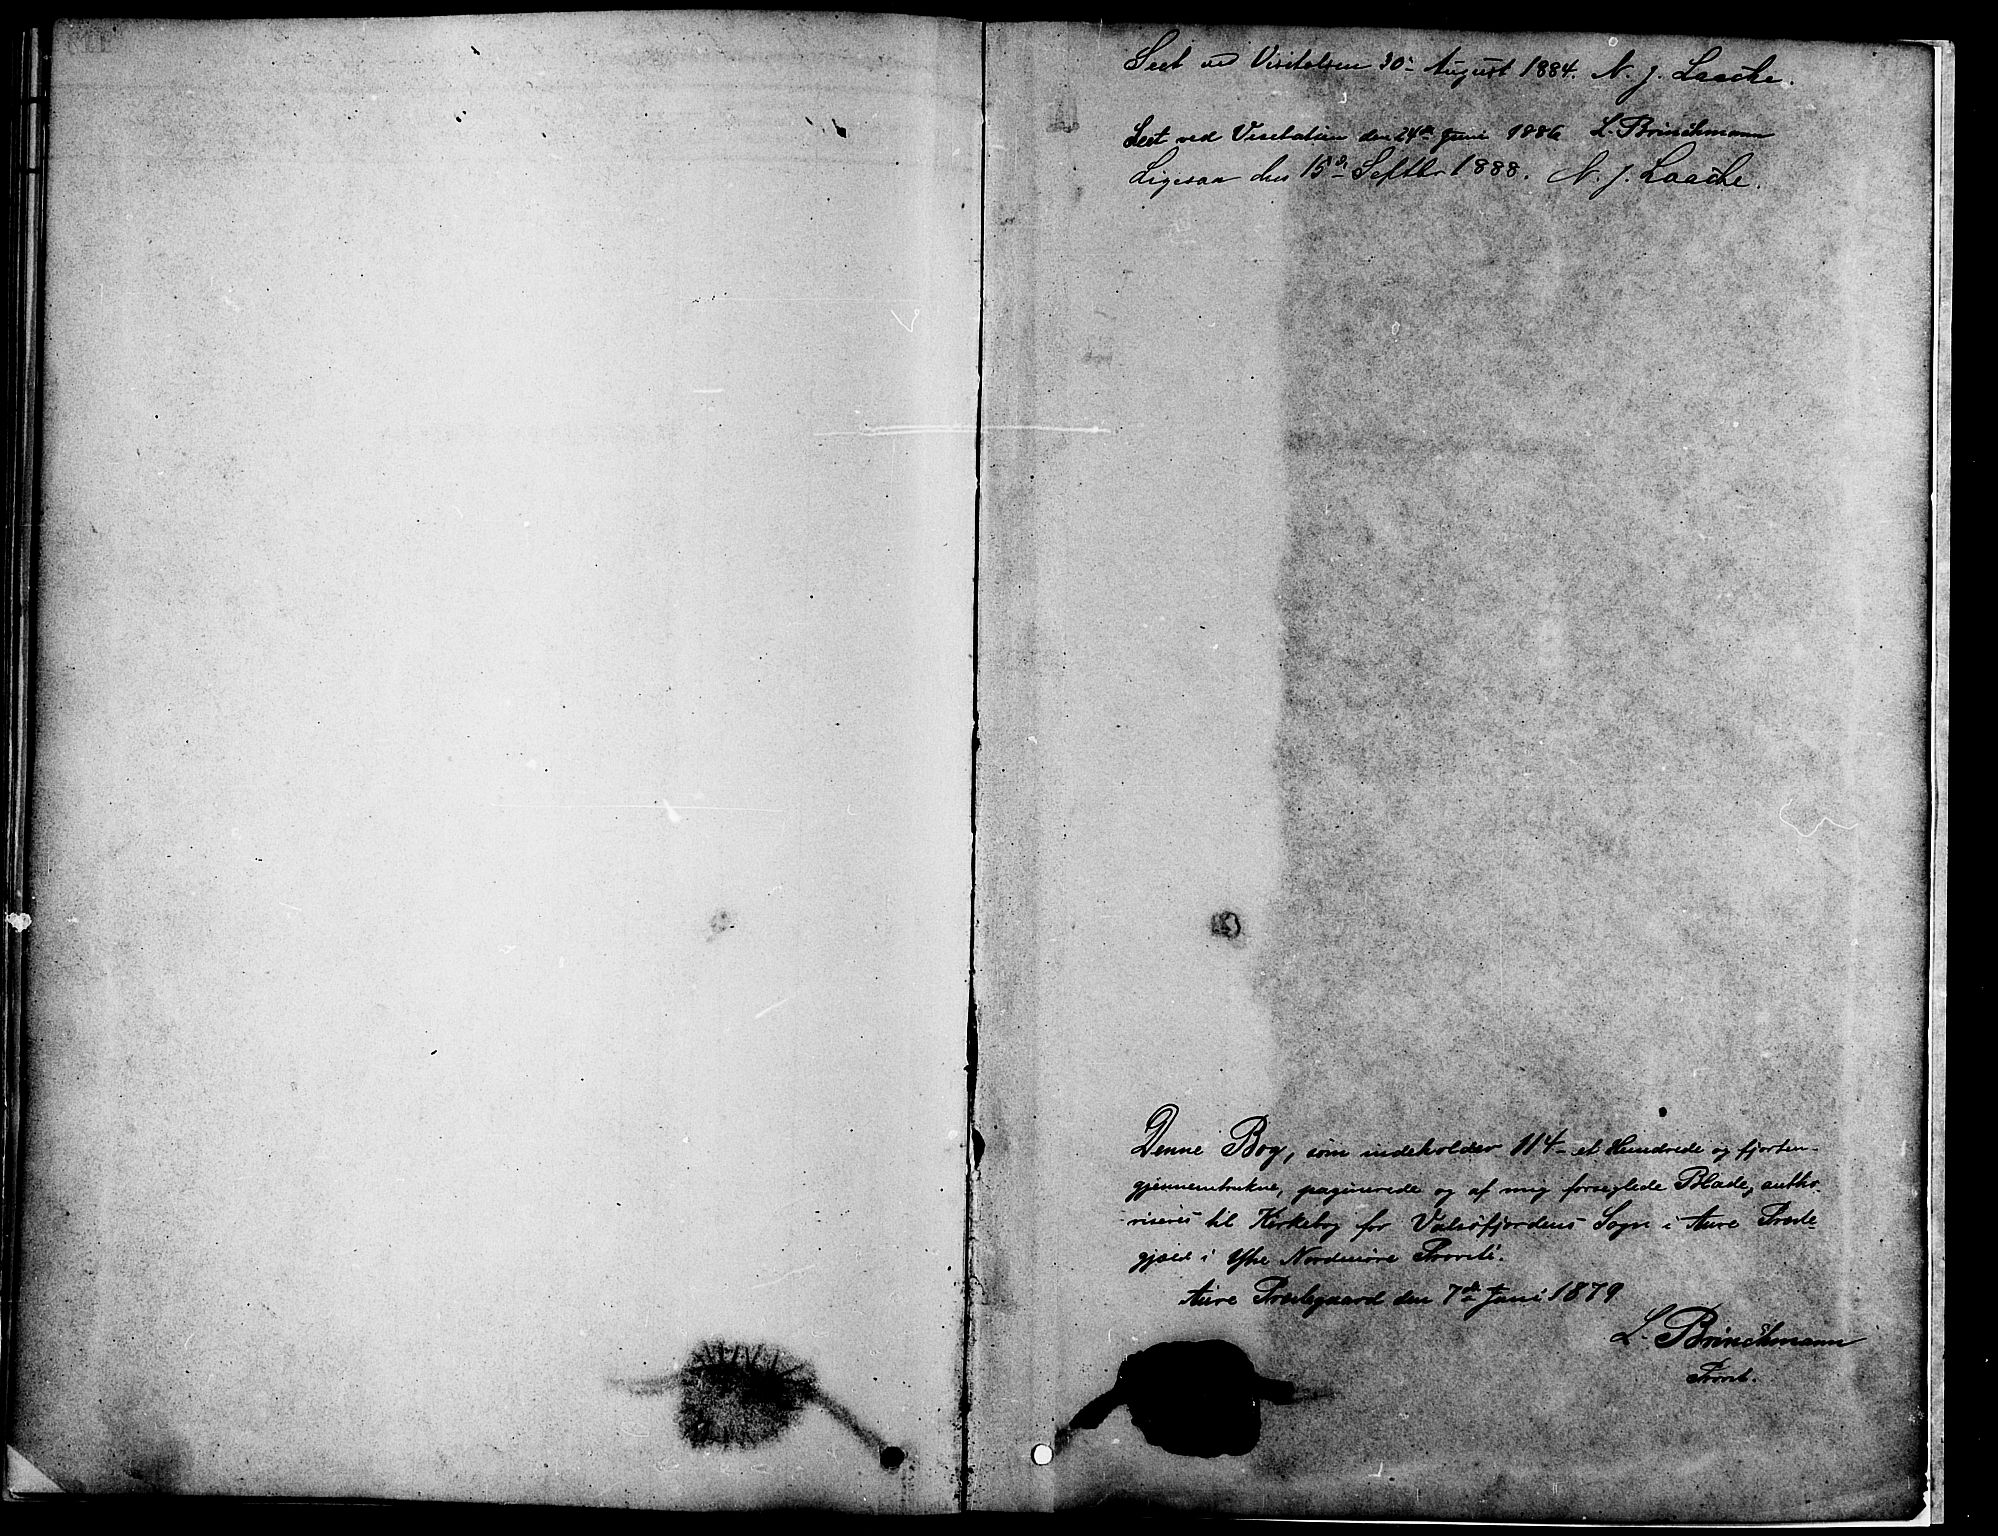 Seet ved Visitatsen 30te August 1884. N. J. Laache.
Seet ved Visitatsen den 24de Juni 1886 L. Brinchmann
Ligesaa den 15de Septbr 1888. N. J. Laache.
Denne Bog, som indeholder 114 - et Hundrede og fjorten -
gjennemtrukne, paginerede og af mig forseglede Blade, autho-
riseres til Kirkebog for Valsøfjordens Sogn i Aure Præste-
gjæld i Ytre Nordmøre Provsti.
Aure Præstegaard den 7de Juni 1879
L. Brinchmann
Provst.